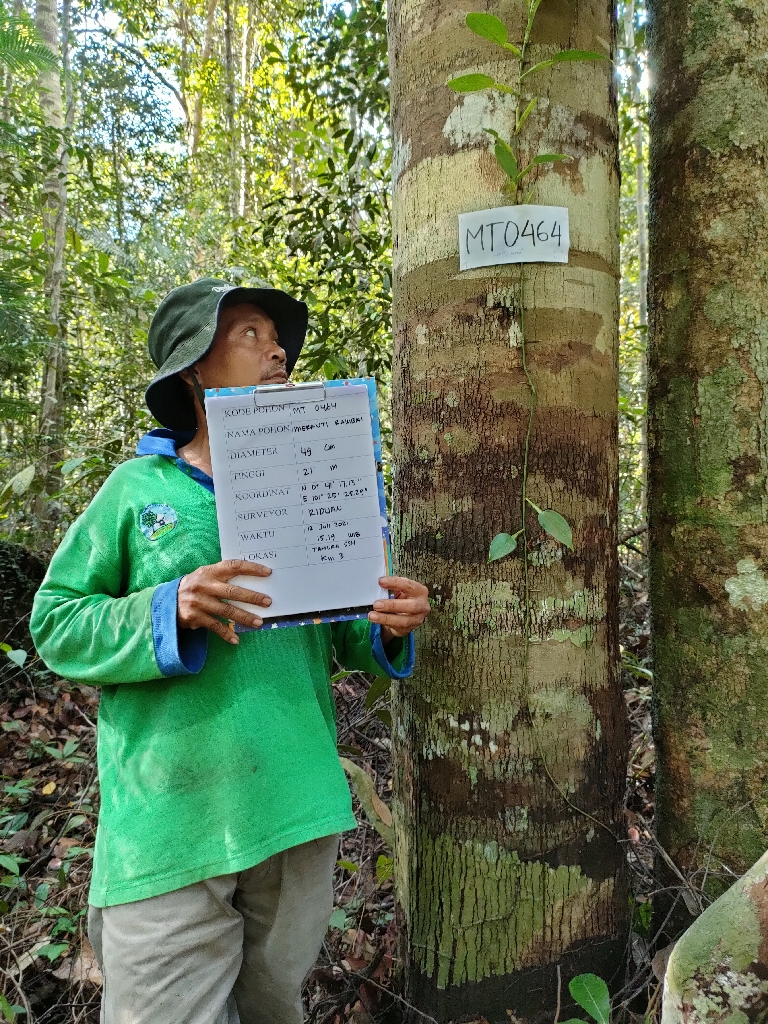 MT0464
KODE POHON MT 0464
NAMA POHON MERANTI RAMBAI
DIAMETER 49 cm
TINGGI 21 m
KOORDINAT N 0° 41' 17.13"
E 101° 25' 25.28"
SURVEYOR RIDUAN
WAKTU 12 Juli 2021
15.19 WIB
LOKASI TAHURA SSH
KM 3